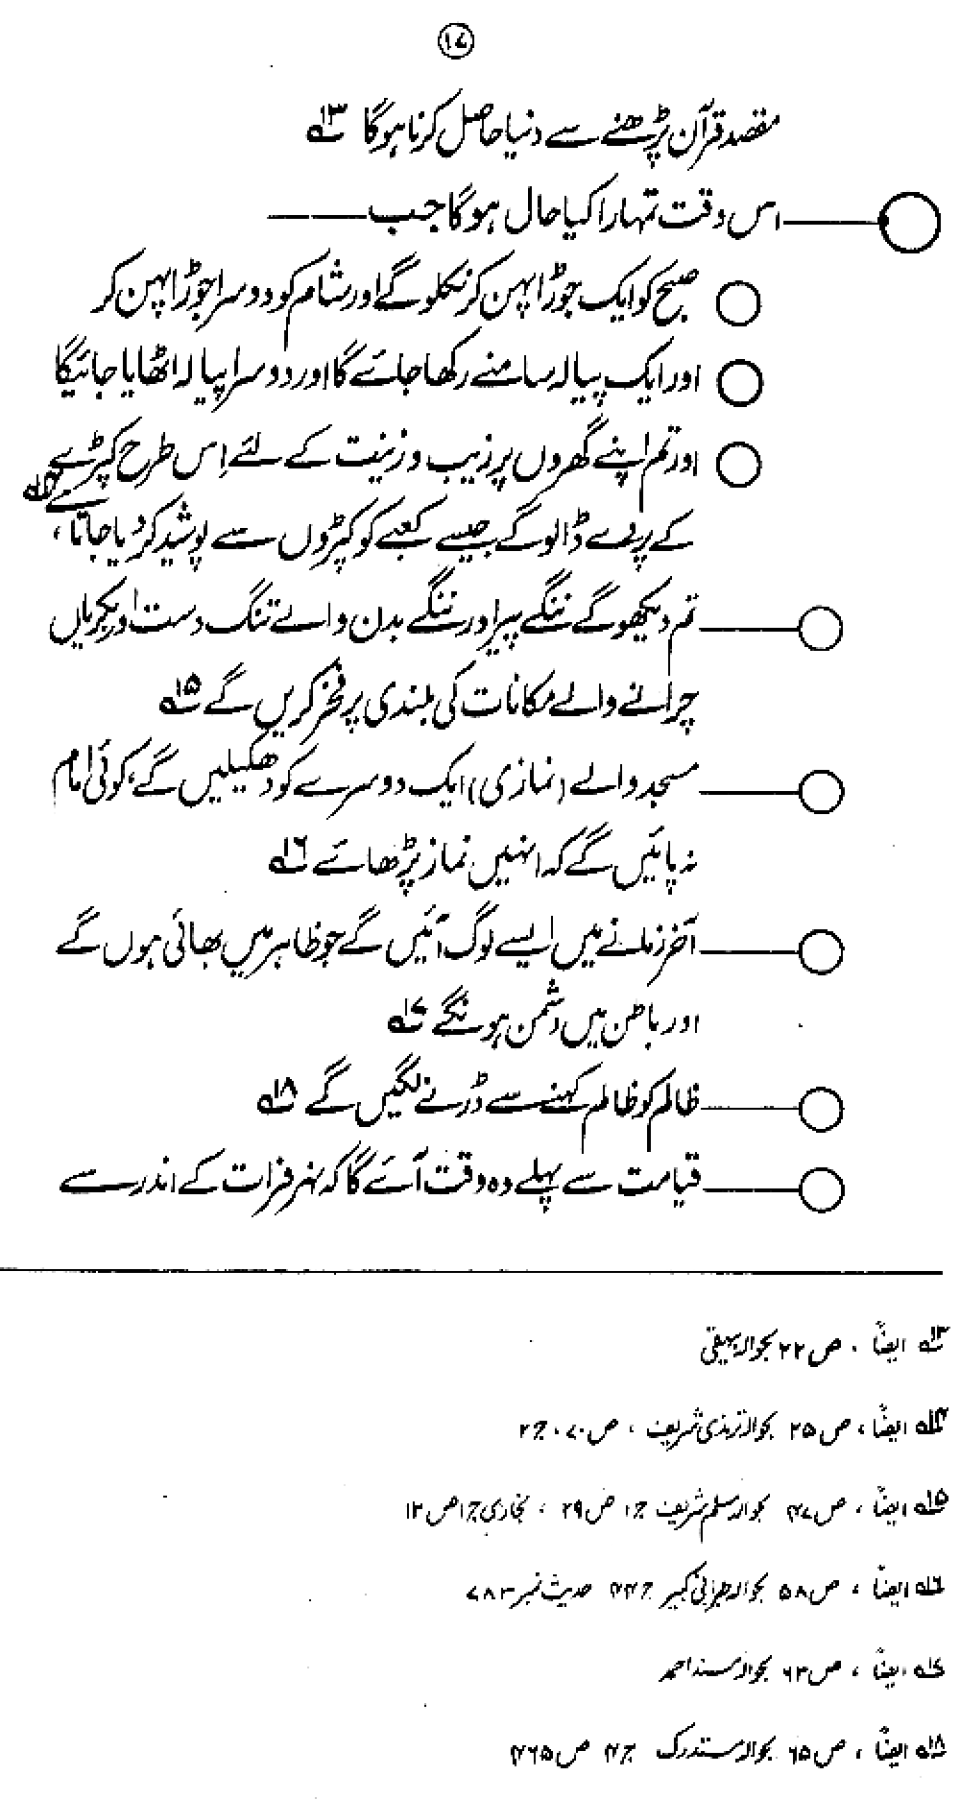 ۱۷
مقصد قرآن پڑھنے سے دنیا حاصل کرنا ہوگا ۱۳؎
اس وقت تمہارا کیا حال ہوگا جب
صبح کو ایک جوڑا پہن کر نکلو گے اور شام کو دوسرا جوڑا پہن کر
اور ایک پیالہ سامنے رکھا جائے گا اور دوسرا پیالہ اٹھایا جائیگا
اور تم اپنے گھروں پر زیب و زینت کے لئے اِس طرح کپڑے
کے پردے ڈالو گے جیسے کعبے کو کپڑوں سے پوشیدہ کر دیا جاتا ہے، ۱۴؎
تم دیکھو گے ننگے پیر اور ننگے بدن والے تنگ دست اور بکریاں
چرانے والے مکانات کی بلندی پر فخر کریں گے ۱۵؎
مسجد والے (نمازی) ایک دوسرے کو دھکیلیں گے، کوئی امام
نہ پائیں گے کہ انہیں نماز پڑھائے ۱۶؎
آخر زمانے میں ایسے لوگ آئیں گے جو ظاہر میں بھائی ہوں گے
اور باطن میں دشمن ہونگے ۱۷؎
ظالم کو ظالم کہنے سے ڈرنے لگیں گے ۱۸؎
قیامت سے پہلے وہ وقت آئے گا کہ نہر فرات کے اندر سے
۱۳؎ ایضاً ، ص ۲۲ بحوالہ بیہقی
۱۴؎ ایضاً ، ص ۲۵ بحوالہ ترمذی شریف ، ص ۷۰ ، ج ۲
۱۵؎ ایضاً ، ص ۴۷ بحوالہ مسلم شریف ج ۱ ص ۲۹ ، بخاری ج ۱ ص ۱۲
۱۶؎ ایضاً ، ص ۵۸ بحوالہ طبرانی کبیر ج ۲۴ حدیث نمبر ۷۸۳
۱۷؎ ایضاً ، ص ۶۳ بحوالہ مسند احمد
۱۸؎ ایضاً ، ص ۶۵ بحوالہ مستدرک ج ۴ ص ۴۶۵